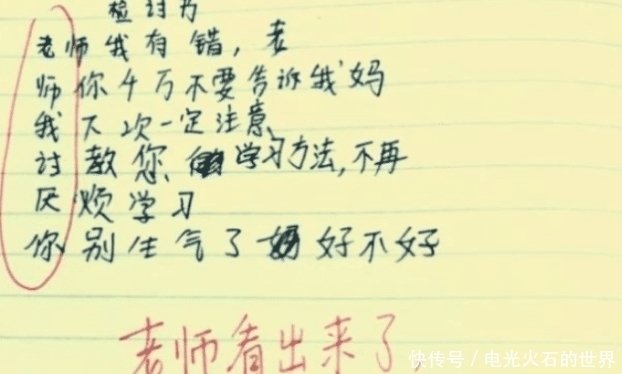 检讨书
老师我有错，老
师你千万不要告诉我妈
我下次一定注意、
讨教您、学习方法，不再
厌烦学习
你别生气了好不好
老师看出来了
快传号／电光火石的世界